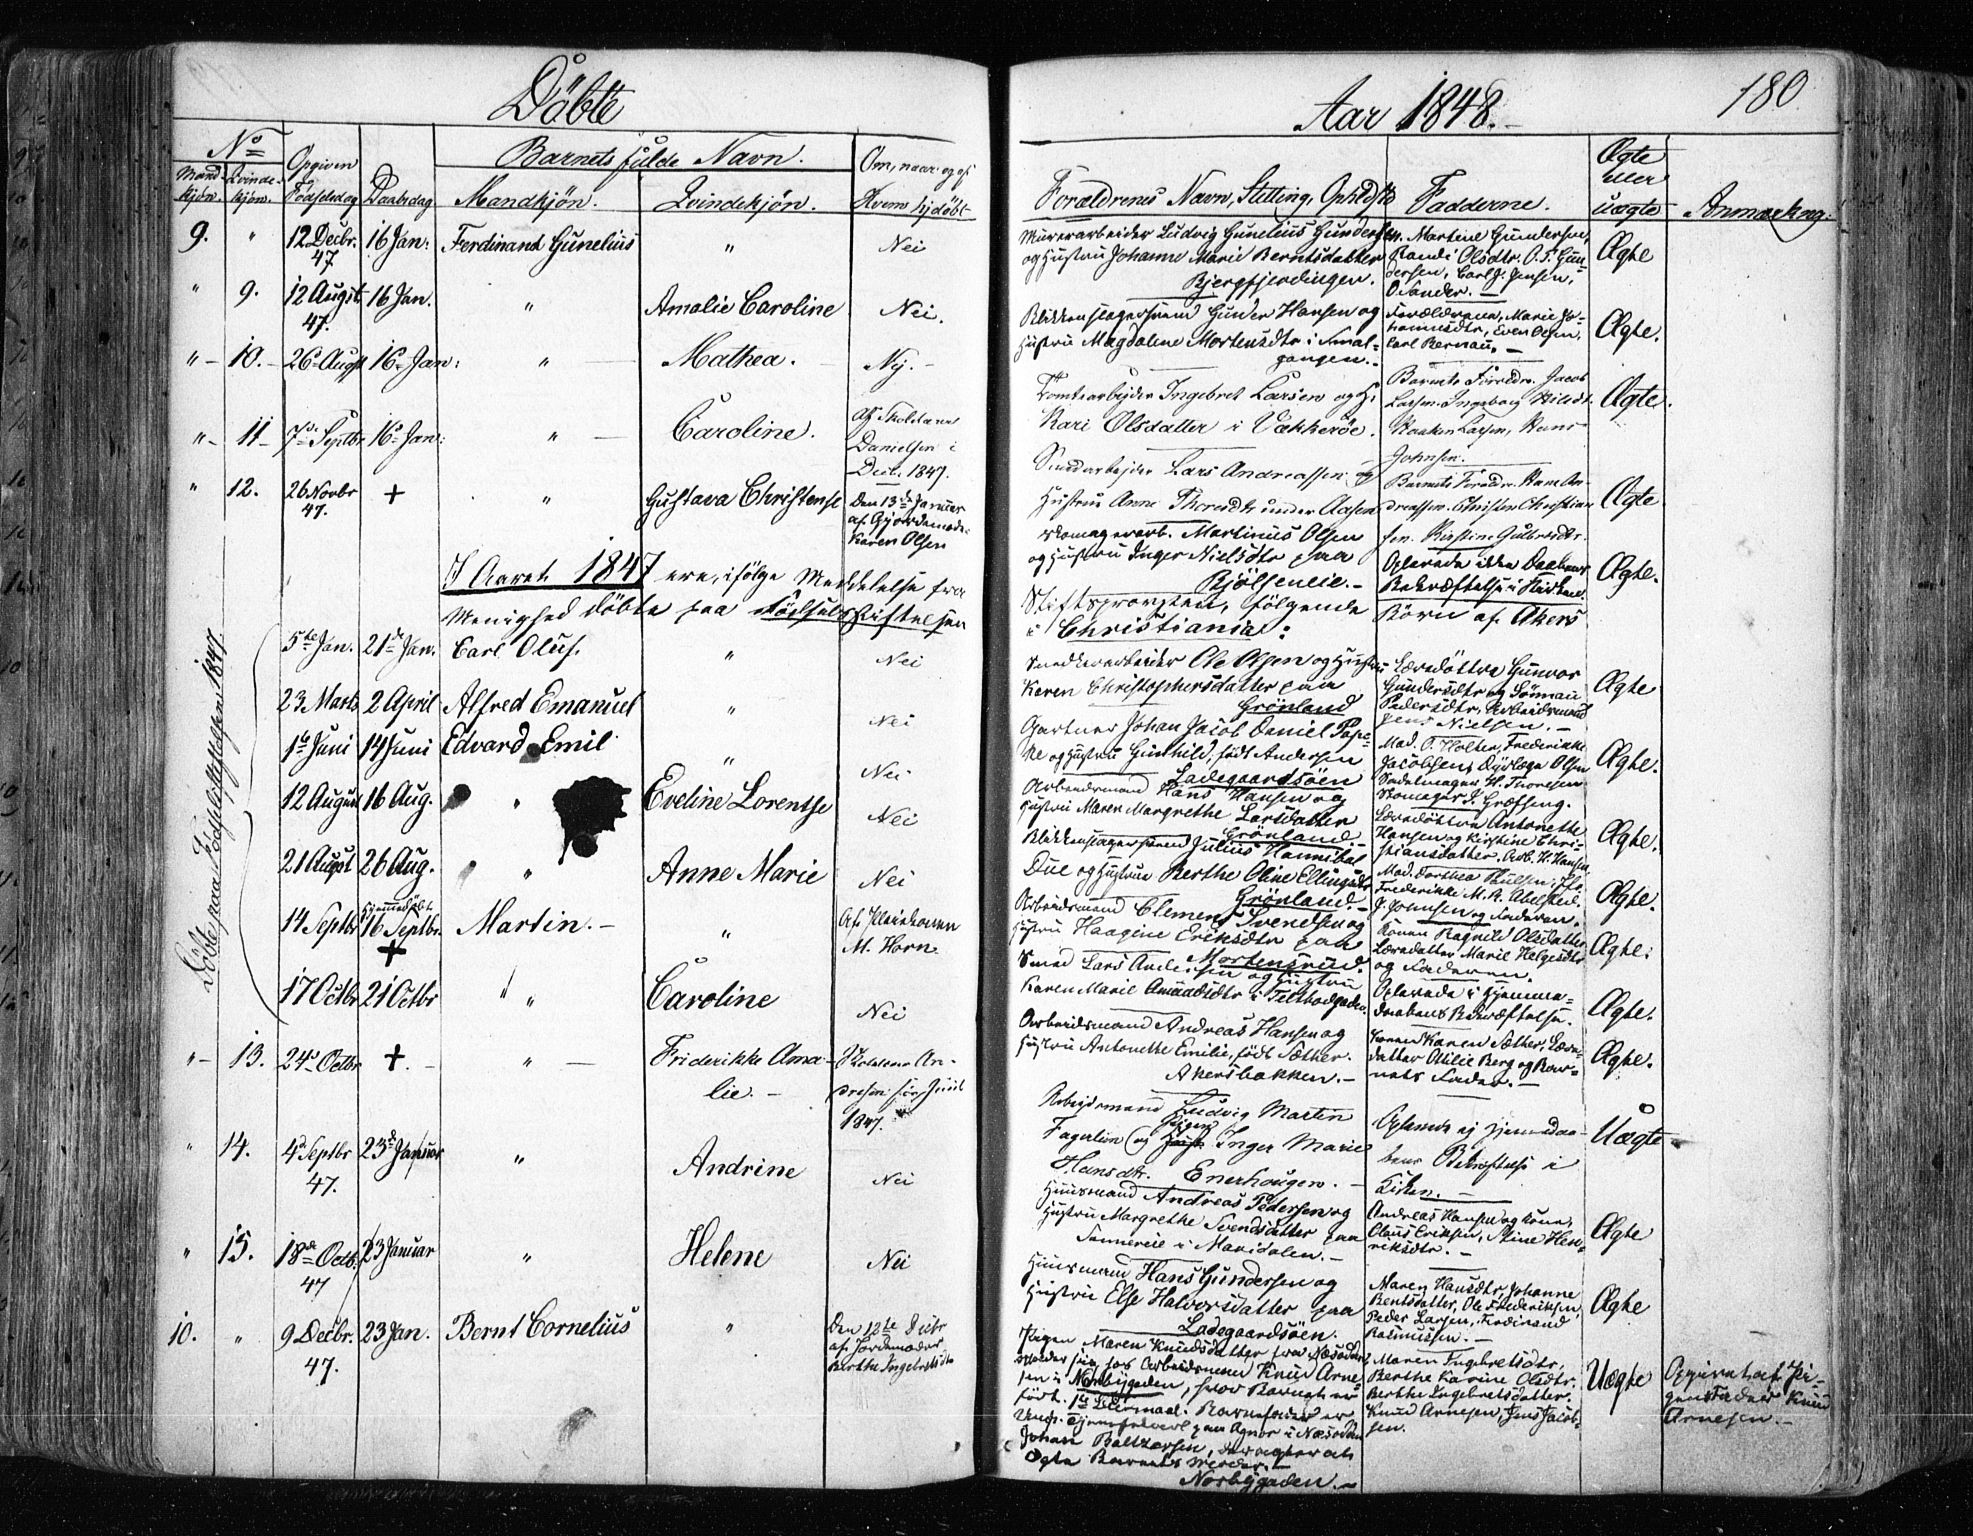 Döbte
Aar 1848.
180
No
Mandkjön.
Qvindekjön.
Opgiven Födselsdag
Daabsdag
Barnets fulde Navn.
Mandkjön.
Qvindekjön.
Om, naar og af Hvem hjdöbt
Forældrenes Navn, Stilling, Opholdst
Fadderne.
Ægte eller uægte
Anmærkng:
9. " 12 Decbr. 47. 16 Jan: Ferdinand Gunelius " Nei
Murerarbeider Ludvig Gunelius Gundersen
og Hustru Johanne Marie Berntsdatter
Bjergfjerdingen.
M. Martine Gundersen,
Randi Olsdtr. O. T. Gun-
dersen, Carl J. Jensen,
O Sander. —
Ægte
" 9. 12 August 47. 16 Jan. " Amalie Caroline Nei.
Blikkenslagersvend Gunder Hansen og
Hustru Magdalene Mortensdtr i Smal-
gangen. —
Forældrene, Marie Jo-
hannesdtr, Even Olsen,
Carl Bernau. —
Ægte.
" 10. 26 August 16 Jan: " Mathea. Nej.
Tomtearbejder Ingebret Larsen og H:
Kari Olsdatter i Vækkeröe.
Barnets Forældre. Jacob
Larsen. Ingeborg
Haaken Larsen, Hans
Johnsen.
Ægte.
" 11 7de Septbr 16 Jan: " Caroline.
Af Skolelærer
Danielsen i
Decb. 1847.
Lars Andreassen og
Hustru Anne Thoresdtr under Aasen
Barnets Forældre. Hans An-
dreassen. Christen Christian
sen. Kirstine Gulbrandsdtr.
Ægte
" 12. 26 Novbr 47. + " Gustava Christense
Den 13de Januar
af Gjordemoder
Karen Olsen
Skomagerarb. Martinus Olsen
og Hustru Inger Nielsdtr paa
Bjölseneie. —
Oplæste ikke Daabens
Bekræftelse i Kirken.
Ægte.
I Aaret 1847 ere, ifölge Meddelelse fra
Stiftsprovsten, fölgende
Börn af Akers
Menighed döbte paa Födselsstiftelsen
i Christiania:
Döbte paa Födselsstiftelsen 1847.
5te Jan. 21de Jan. Carl Oluf. " Nei
Snedkerarbeider Ole Olsen og Hustru
Karen Christophersdatter paa
Grönland
Læredöttre Gunvor
Gundersdtr og
Pedersdtr, Arbeidsmand
Jens Nielsen. —
Ægte
23 Marts 2 April Alfred Emanuel " Nei
Gartner Johan Jacob Daniel Pape-
ke og Hustru Gunhild, född Andersen
Ladegaardsöen
Mad. T. Holter, Frederikke
Jacobsen, Olsen
Sadelmager H. Thoresen
Skomager J.
Ægte.
1te Juni 14 Juni Edvard Emil " Nei
Arbeidsmand Hans Hansen og
Hustru Maren Margrethe Larsdatter
Grönland. —
Læredöttre Antonette
Hansen og Kirstine Chri-
stiansdatter, Arb. H. Hansen
Ægte.
12 August 16 Aug. " Eveline Lorentse Nei
Blikkenslagersvend Julius Hannibal
Due og Hustru Berthe Oline Ellingsdtr
Grönland. —
Mad. Dorthea Paulsen, Jfr.
Frederikke M. A.
J. Johnsen og Faderen.
Ægte.
21 August 26 Aug. " Anne Marie Nei
Arbeidsmand Clemen Svendsen og
Hustru Haagine Eriksdtr paa
Mortensrud.
Konen Ragnild Olsdatter
Læredatter Marie Helgesdtr
og Faderen.
Ægte:
14 Septbr Hjemmedöbt 16 Septbr. + Martin. — "
Af Pleiekonen
M. Horn.
Smed Lars Andersen og Hustru
Karen Marie Amundsdtr i Teltbodgaden.
Oplæste i Hjemme-
daabens Bekræftelse.
Ægte.
17 Octbr 21 Octbr " " Caroline Nei
Arbeidsmand Andreas Hansen og
Hustru Antonette Emilie, född Sæther.
Akersbakken. —
Konen Karen Sæther, Lære-
datter Otilie Berg og Bar-
nets Fader. —
Ægte.
" 13. 24 Octbr + " Friderikke Ama-
lie. —
Skolelærer An-
dresen
1847.
Arbejdsmand Ludvig Martin
Fagerlien og Pigen Inger Marie
Hansdtr. Enerhougen. —
Oplæstes ej Hjemmedaa-
bens Bekræftelse i
Kirken. —
Uægte
" 14. 4de Septbr 47. 23de Januar " Andrine Nei
Huusmand Andreas Pedersen og
Hustru Margrethe Svendsdatter paa
i Maridalen. —
Andreas Hansen og Kone,
Claus Eriksen, Stine Hen-
riksdtr. —
Ægte
" 15. 18de Octb. 47 23 Januar " Helene Nei
Huusmand Hans Gundersen og
Hustru Else Halvorsdatter paa
Ladegaardsöen.
Maren Hansdtr, Johanne
Berntsdatter, Ole Frederiksen,
Peder Larsen, Ferdinand
Rasmussen. —
Ægte
10. " 9 Decbr. 47. 23 Jan. Bernt Cornelius "
Den 12te Decbr
af Jordemoder
Berthe Ingebretsdtr
Pigen Maren Knudsdatter fra Næsodden
opholder sig hos Arbeidsmand Knud Arne-
sen i Norbygaden, hvor Barnet er
född. 1ste Leiermaal. Barnefader er
Ungk. Tjenestekarl paa Agnor i Næsodden
Johan Baltzersen,
Ægte Barnets
Norbygaden. —
Maren Ingebretsdtr,
Berthe Karine Olsdtr,
Berthe Ingebretsdatter,
Knud Arnesen, Jens Jacob-
sen.
Uægte
Opgivet af Pi-
gens Fader Knud
Arnesen. —